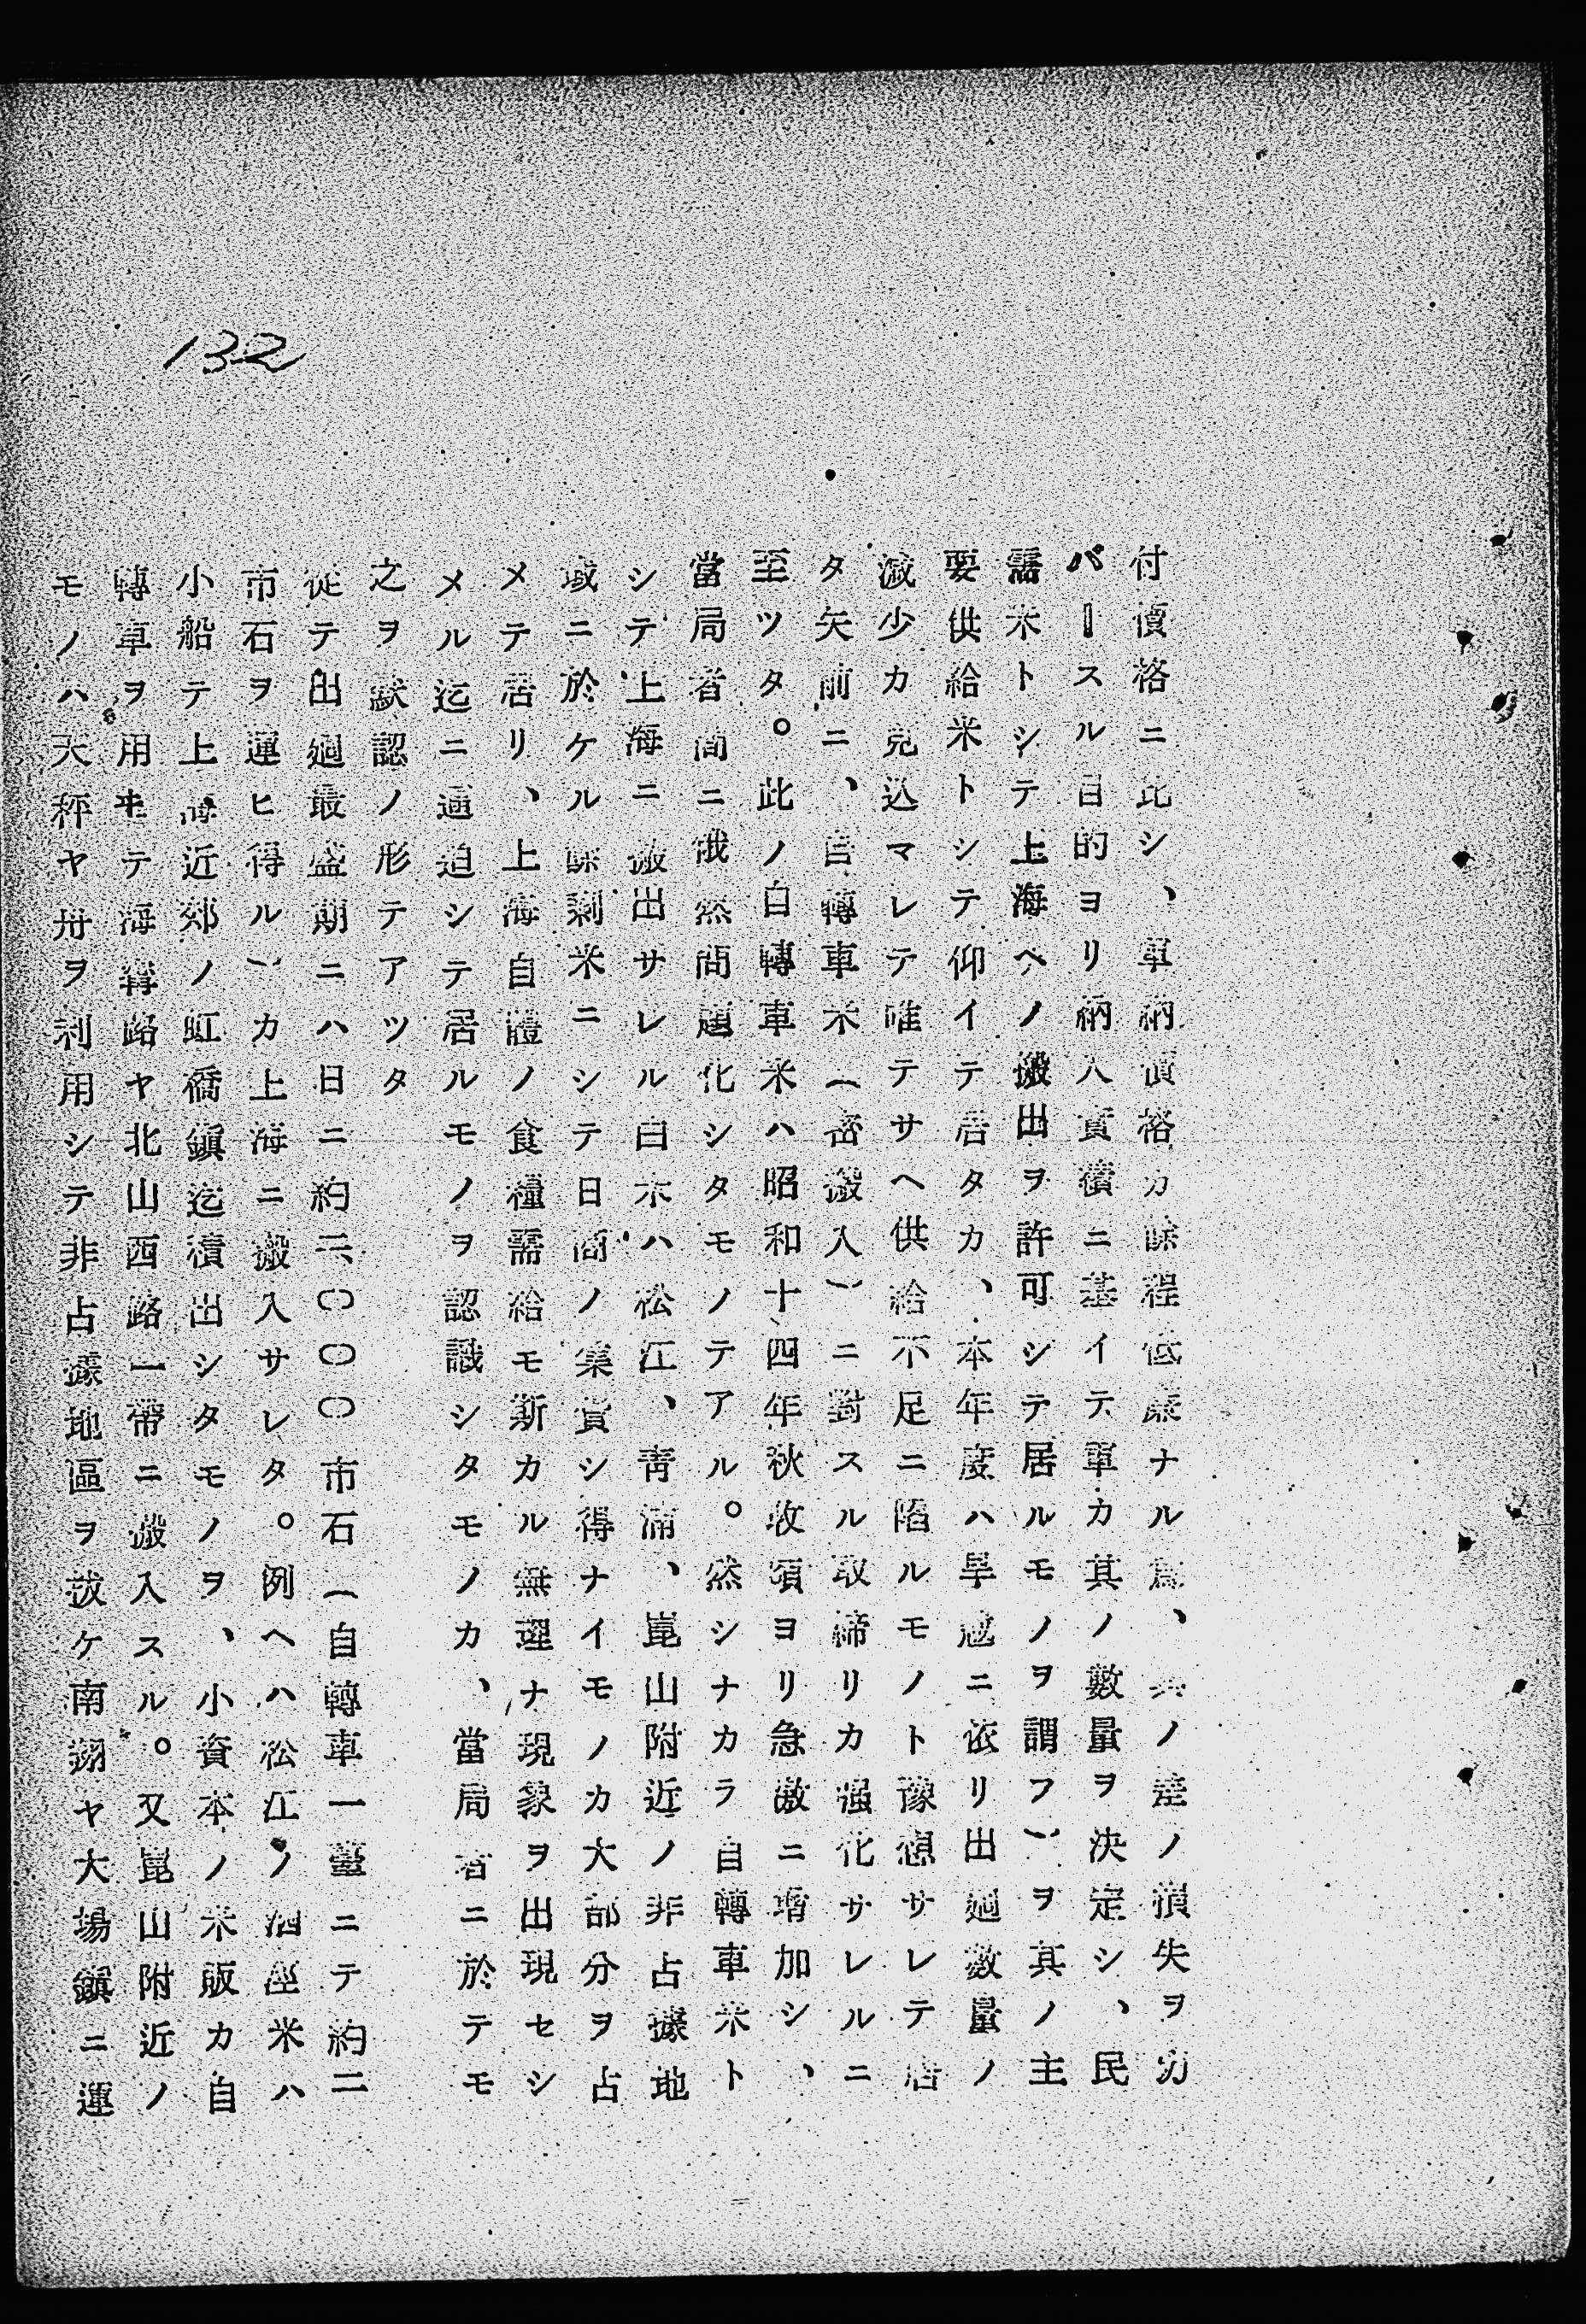 132
付價格ニ比シ、軍納價格カ餘程低廉ナル爲、其ノ差ノ損失ヲカ
バースル目的ヨリ納入實績ニ基イテ軍カ其ノ數量ヲ決定シ、民
需米トシテ上海ヘノ搬出ヲ許可シテ居ルモノヲ謂フ)ヲ其ノ主
要供給米トシテ仰イテ居タカ、本年度ハ旱魃ニ依リ出廻數量ノ
減少カ見込マレテ唯テサヘ供給不足ニ陷ルモノト豫想サレテ居
タ矢前ニ、自轉車米(密搬入)ニ對スル取締リカ强化サレルニ
至ツタ。此ノ自轉車米ハ昭和十四年秋收頃ヨリ急激ニ増加シ、
當局者間ニ俄然問題化シタモノテアル。然シナカラ自轉車米ト
シテ上海ニ搬出サレル白米ハ松江、靑浦、崑山附近ノ非占據地
域ニ於ケル餘剩米ニシテ日商ノ集買シ得ナイモノカ大部分ヲ占
メテ居リ、上海自體ノ食糧需給モ斯カル無理ナ現象ヲ出現セシ
メル迄ニ逼迫シテ居ルモノヲ認識シタモノカ、當局者ニ於テモ
之ヲ默認ノ形テアツタ
從テ出廻最盛期ニハ日ニ約二、〇〇〇市石(自轉車一臺ニテ約二
市石ヲ運ヒ得ル)カ上海ニ搬入サレタ。例ヘハ松江ノ泗涇米ハ
小船テ上海近郊ノ虹橋鎭迄積出シタモノヲ、小資本ノ米販カ自
轉車ヲ用ヰテ海格路ヤ北山西路一帶ニ搬入スル。又崑山附近ノ
モノハ天秤ヤ舟ヲ利用シテ非占據地區ヲ拔ケ南翔ヤ大場鎭ニ運